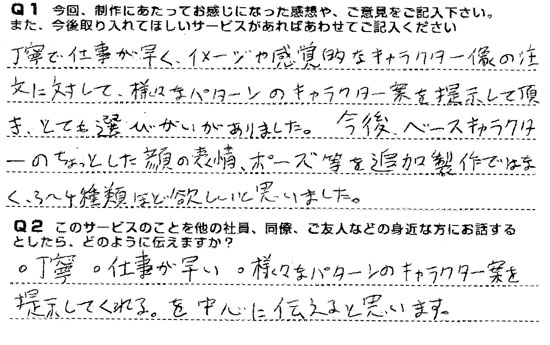 Q1 今回、制作にあたってお感じになった感想や、ご意見をご記入下さい。
また、今後取り入れてほしいサービスがあればあわせてご記入ください
丁寧で仕事が早く、イメージや感覚的なキャラクター像の注
文に対して、様々なパターンのキャラクター案を提示して頂
き、とても選びがいがありました。 今後、ベースキャラクタ
ーのちょっとした顔の表情、ポーズ等を追加製作ではな
く、3〜4種類ほど欲しいと思いました。
Q2 このサービスのことを他の社員、同僚、ご友人などの身近な方にお話する
としたら、どのように伝えますか？
○丁寧 ○仕事が早い ○様々なパターンのキャラクター案を
提示してくれる。を中心に伝えると思います。